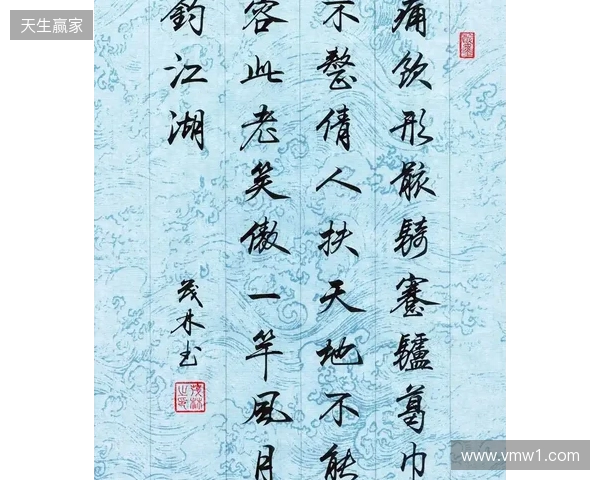 天生赢家
痛飲形骸騎蹇驢葛巾
不整倩人扶天地不能
容此老笑傲一竿風月
釣江湖
茂林书
www.vmw1.com